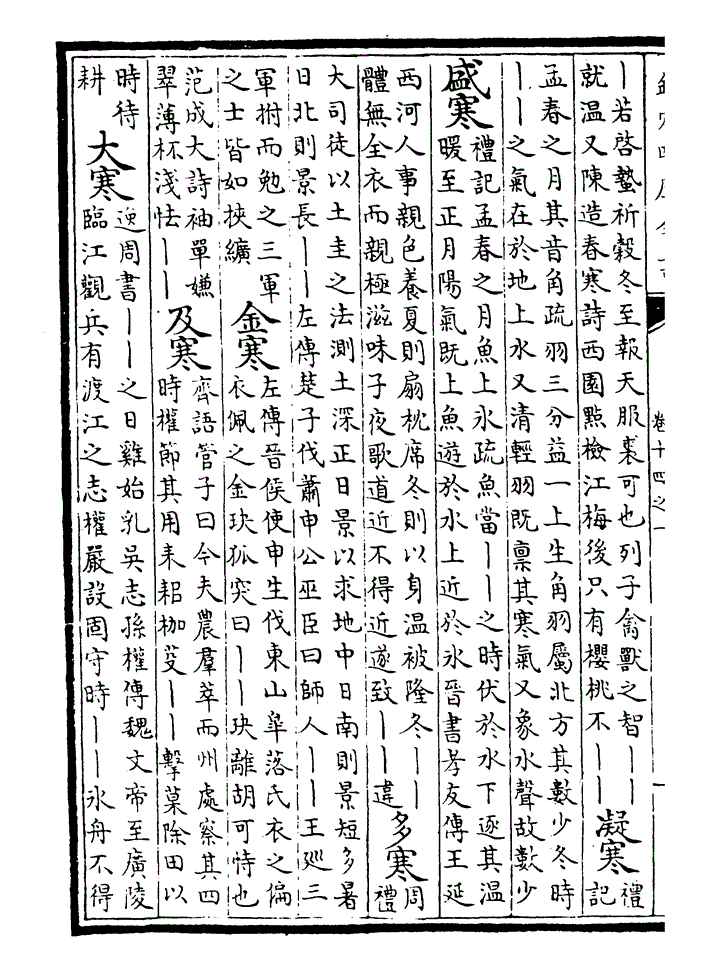 卷十四之一
｜若啓蟄祈穀冬至報天服裘可也列子禽獸之智｜｜
就温又陳造春寒詩西園點檢江梅後只有櫻桃不｜｜
凝寒
禮
記
孟春之月其音角疏羽三分益一上生角羽屬北方其數少冬時
｜｜之氣在於地上水又清輕羽既稟其寒氣又象水聲故數少
盛寒
禮記孟春之月魚上氷疏魚當｜｜之時伏於水下逐其温
暖至正月陽氣既上魚遊於水上近於氷晉書孝友傳王延
西河人事親色養夏則扇枕席冬則以身温被隆冬｜｜
體無全衣而親極滋味子夜歌道近不得近遂致｜｜違
多寒
周
禮
大司徒以土圭之法測土深正日景以求地中日南則景短多暑
日北則景長｜｜左傳楚子伐蕭申公巫臣曰師人｜｜王廵三
軍拊而勉之三軍
之士皆如挾纊
金寒
左傳晉侯使申生伐東山臯落氏衣之偏
衣佩之金玦狐突曰｜｜玦離胡可恃也
范成大詩袖單嫌
翠薄杯淺怯｜｜
及寒
齊語管子曰今夫農羣萃而州處察其四
時權節其用耒耜枷芟｜｜擊菒除田以
時待
耕
大寒
逸周書｜｜之日雞始乳吳志孫權傳魏文帝至廣陵
臨江觀兵有渡江之志權嚴設固守時｜｜氷舟不得